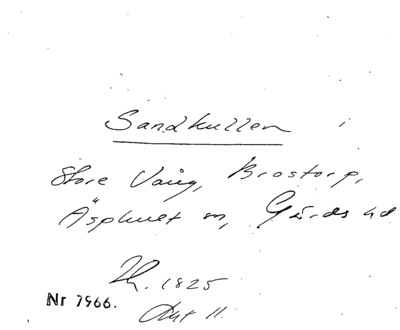 Sandkullen i
Store Vång, Brostorp,
Äsphult sn, Gärds hd
1825
Nr 7966.
Akt 11.